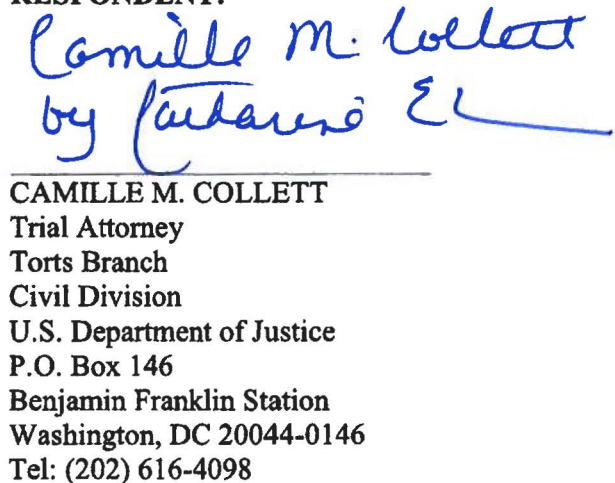 RESPONDENT:
Camille M. Collett
by Catharine E
CAMILLE M. COLLETT
Trial Attorney
Torts Branch
Civil Division
U.S. Department of Justice
P.O. Box 146
Benjamin Franklin Station
Washington, DC 20044-0146
Tel: (202) 616-4098